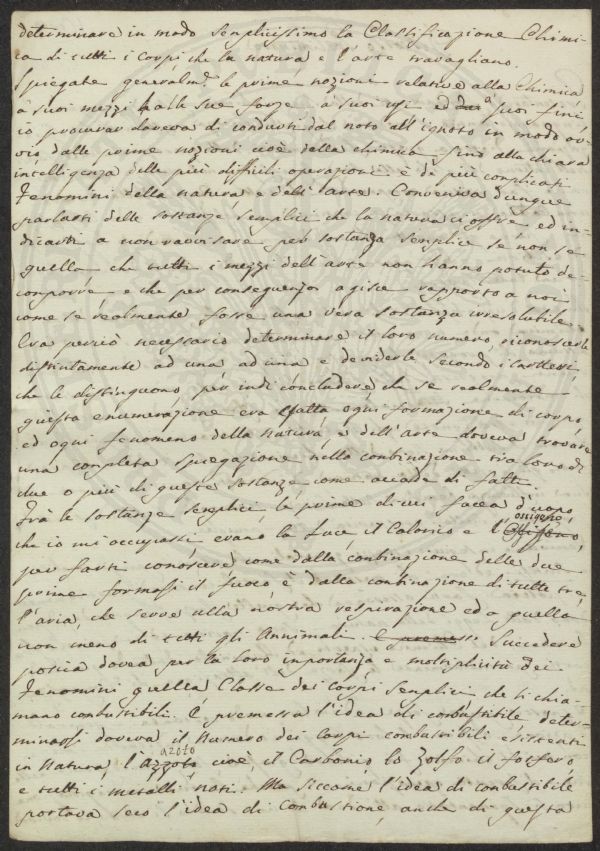 determinare in modo semplicissimo la Classificazione Chimi
ca di tutti i corpi che la natura e l'arte travagliano.
Spiegate generalm.e le prime nozioni relative alla Chimica
à suoi mezzi alle sue forze à suoi usi ed a' suoi fini
io procurar doveva di condurti dal noto all'ignoto in modo ov-
vio dalle prime nozioni cioè della chimica fino alla chiara
intelligenza delle più difficili operazioni e de più conplicati
Fenomini della natura e dell'arte. Conveniva dunque
parlarti delle sostanze semplici che la natura ci offre ed in-
dicarti a non ravvisare per sostanza semplice se non se
quella che tutti i mezzi dell'arte non hanno potuto de-
conporre e che per conseguenza agisce rapporto a noi
come se realmente fosse una vera sostanza irresolubile.
Era perciò necessario determinare il loro numero, riconoscerle
distintamente ad una ad una e dividerle secondo i caratteri
che le distinguono, per indi concludere, che se realmente
questa enumerazione era esatta ogni formazione di corpi
ed ogni fenomeno della natura, e dell'arte doveva trovare
una conpleta spiegazione nella conbinazione tra loro di
due o più di queste sostanze come accade di fatti.
Frà le sostanze semplici le prime di cui facea d'uopo,
che io mi occupassi erano la Luce, il Calorico e l'ossigeno,
per farti conoscere come dalla conbinazione delle due
prime formasi il fuoco e dalla conbinazione di tutte tre
l'aria, che serve alla nostra respirazione ed a quella
non meno di tutti gli Annimali. Succedere
poscia dovea per la loro importanza e moltiplicità dei
Fenomini quella Classe dei corpi semplici che si chia-
mano conbustibili. E premessa l'idea di conbustibile, deter-
minarsi doveva il Numero dei corpi conbustibili esistenti
in Natura l'azoto cioè, il Carbonio lo Zolfo il fosforo
e tutti i metalli noti. Ma siccome l'idea di conbustibile
portava seco l'idea di Conbustione, anche di questa